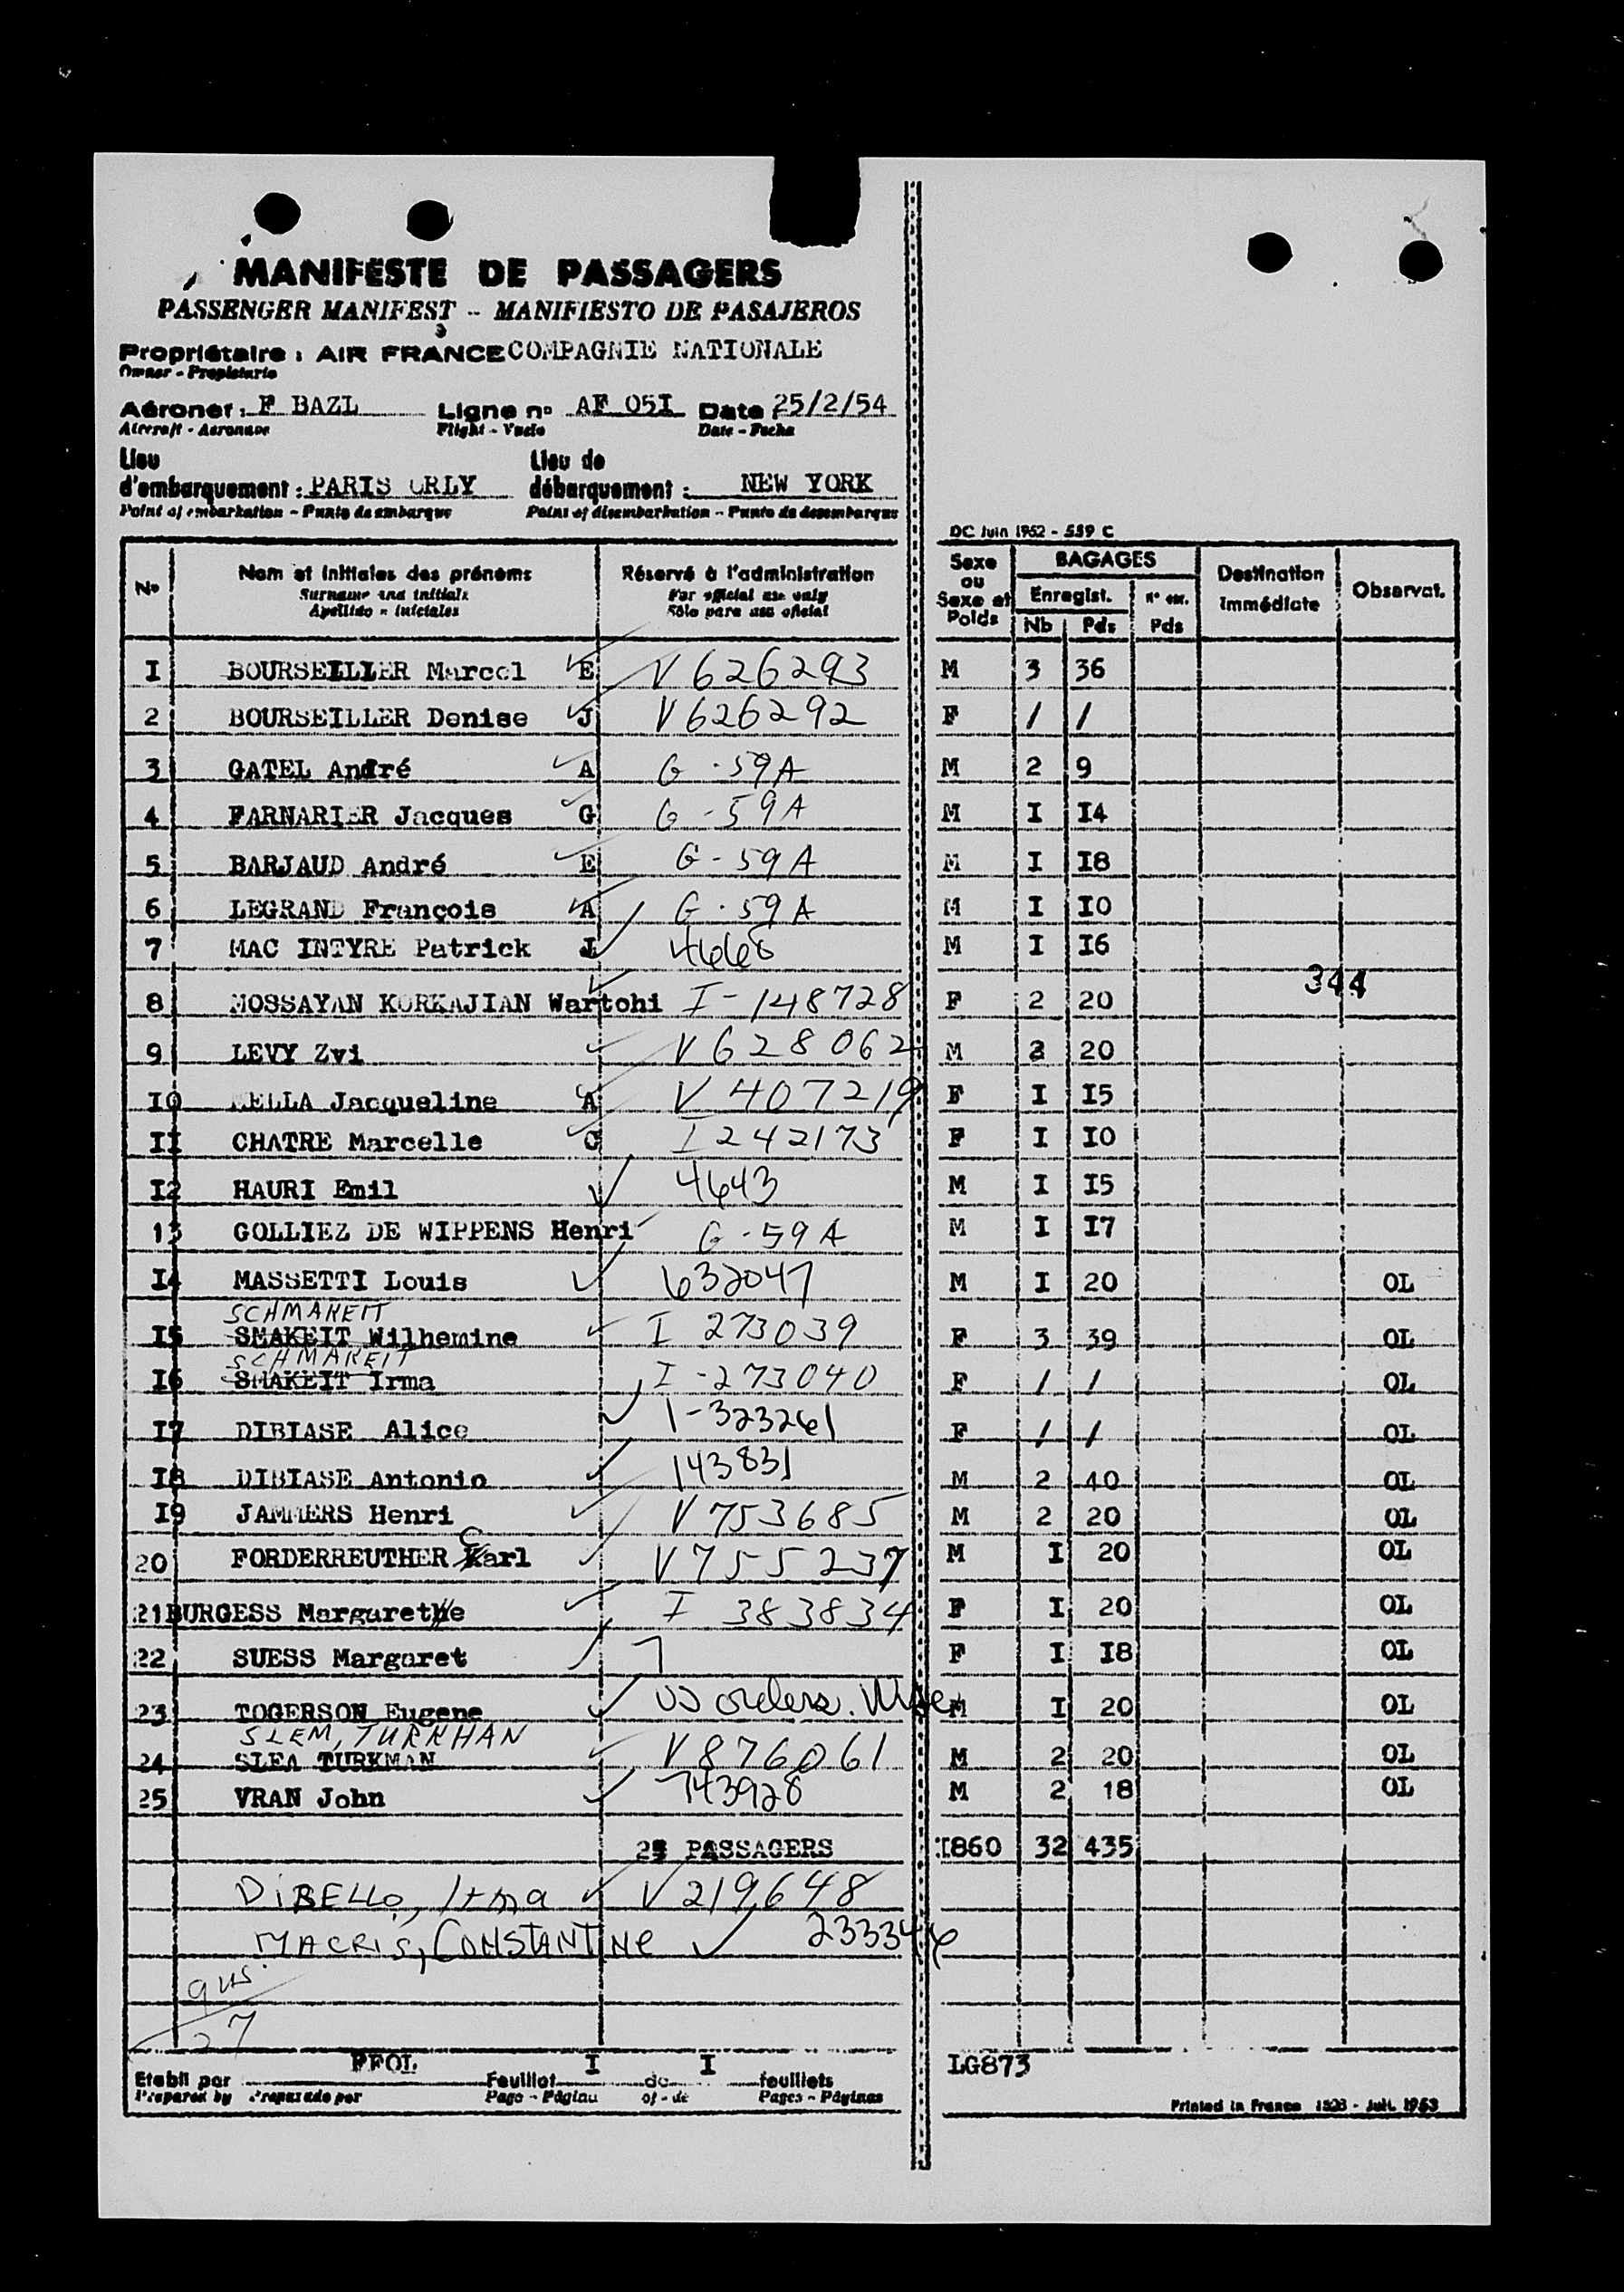 MANIFESTE DE PASSAGERS
PASSENGER MANIFEST - MANIFIESTO DE PASAJEROS
Propriétaire : AIR FRANCE COMPAGNIE NATIONALE
Owner - Propietario
Aéronef : F BAZL Ligne nº AF 05I Date 25/2/54
Aircraft - Aeronave Flight - Vuelo Date - Fecha
Lieu d'embarquement : PARIS ORLY Lieu de débarquement : NEW YORK
Point of embarkation - Punto de embarque Point of disembarkation - Punto de desembarque
DC Juin 1952 - 559 C
Nº Nom et initiales des prénoms Réservé à l'administration Sexe ou Sexe et Poids BAGAGES Destination immédiate Observat.
Surname and initials For official use only Enregist.
Apellido - iniciales Sólo para uso oficial Nb Pds Pds
I BOURSEILLER Marcel E V 626293 M 3 36
2 BOURSEILLER Denise J V 626292 F / /
3 GATEL André A G - 59A M 2 9
4 FARNARIER Jacques G G - 59A M I I4
5 BARJAUD André E G - 59A M I I8
6 LEGRAND François A G - 59A M I I0
7 MAC INTYRE Patrick I M I I6
344
8 MOSSAYAN KORKAJIAN Wartohi I - 148728 F 2 20
9 LEVY Zvi V 628062 M 2 20
I0 Jacqueline A V 407219 F I I5
II CHATRE Marcelle C I 242173 F I I0
I2 HAURI Emil 4643 M I I5
13 GOLLIEZ DE WIPPENS Henri G - 59A M I I7
I4 MASSETTI Louis 632047 M I 20 OL
SCHMAKEIT
I5 SMAKEIT Wilhemine I 273039 F 3 39 OL
SCHMAKEIT
I6 SMAKEIT Irma I - 273040 F / / OL
I7 DIBIASE Alice I - 323261 F / / OL
I8 DIBIASE Antonio 143831 M 2 40 OL
I9 JAMMERS Henri V 753685 M 2 20 OL
C
20 FORDERREUTHER Karl V 755237 M I 20 OL
21 BURGESS Margarethe I 383834 F I 20 OL
22 SUESS Margaret 7 F I I8 OL
23 TOGERSON Eugene orders. M I 20 OL
SLEM, TURKHAN
24 SLEA TURKMAN V 876061 M 2 20 OL
25 VRAN John 743928 M 2 18 OL
25 PASSAGERS I860 32 435
DiBELLO, Irma V 219648
MACRIS, CONSTANTINE 233346
27
Etabli par FFOL Feuillet I de I feuillets LG873
Prepared by Preparado por Page - Página of - de Pages - Páginas
Printed in France 1523 - Juil. 1953